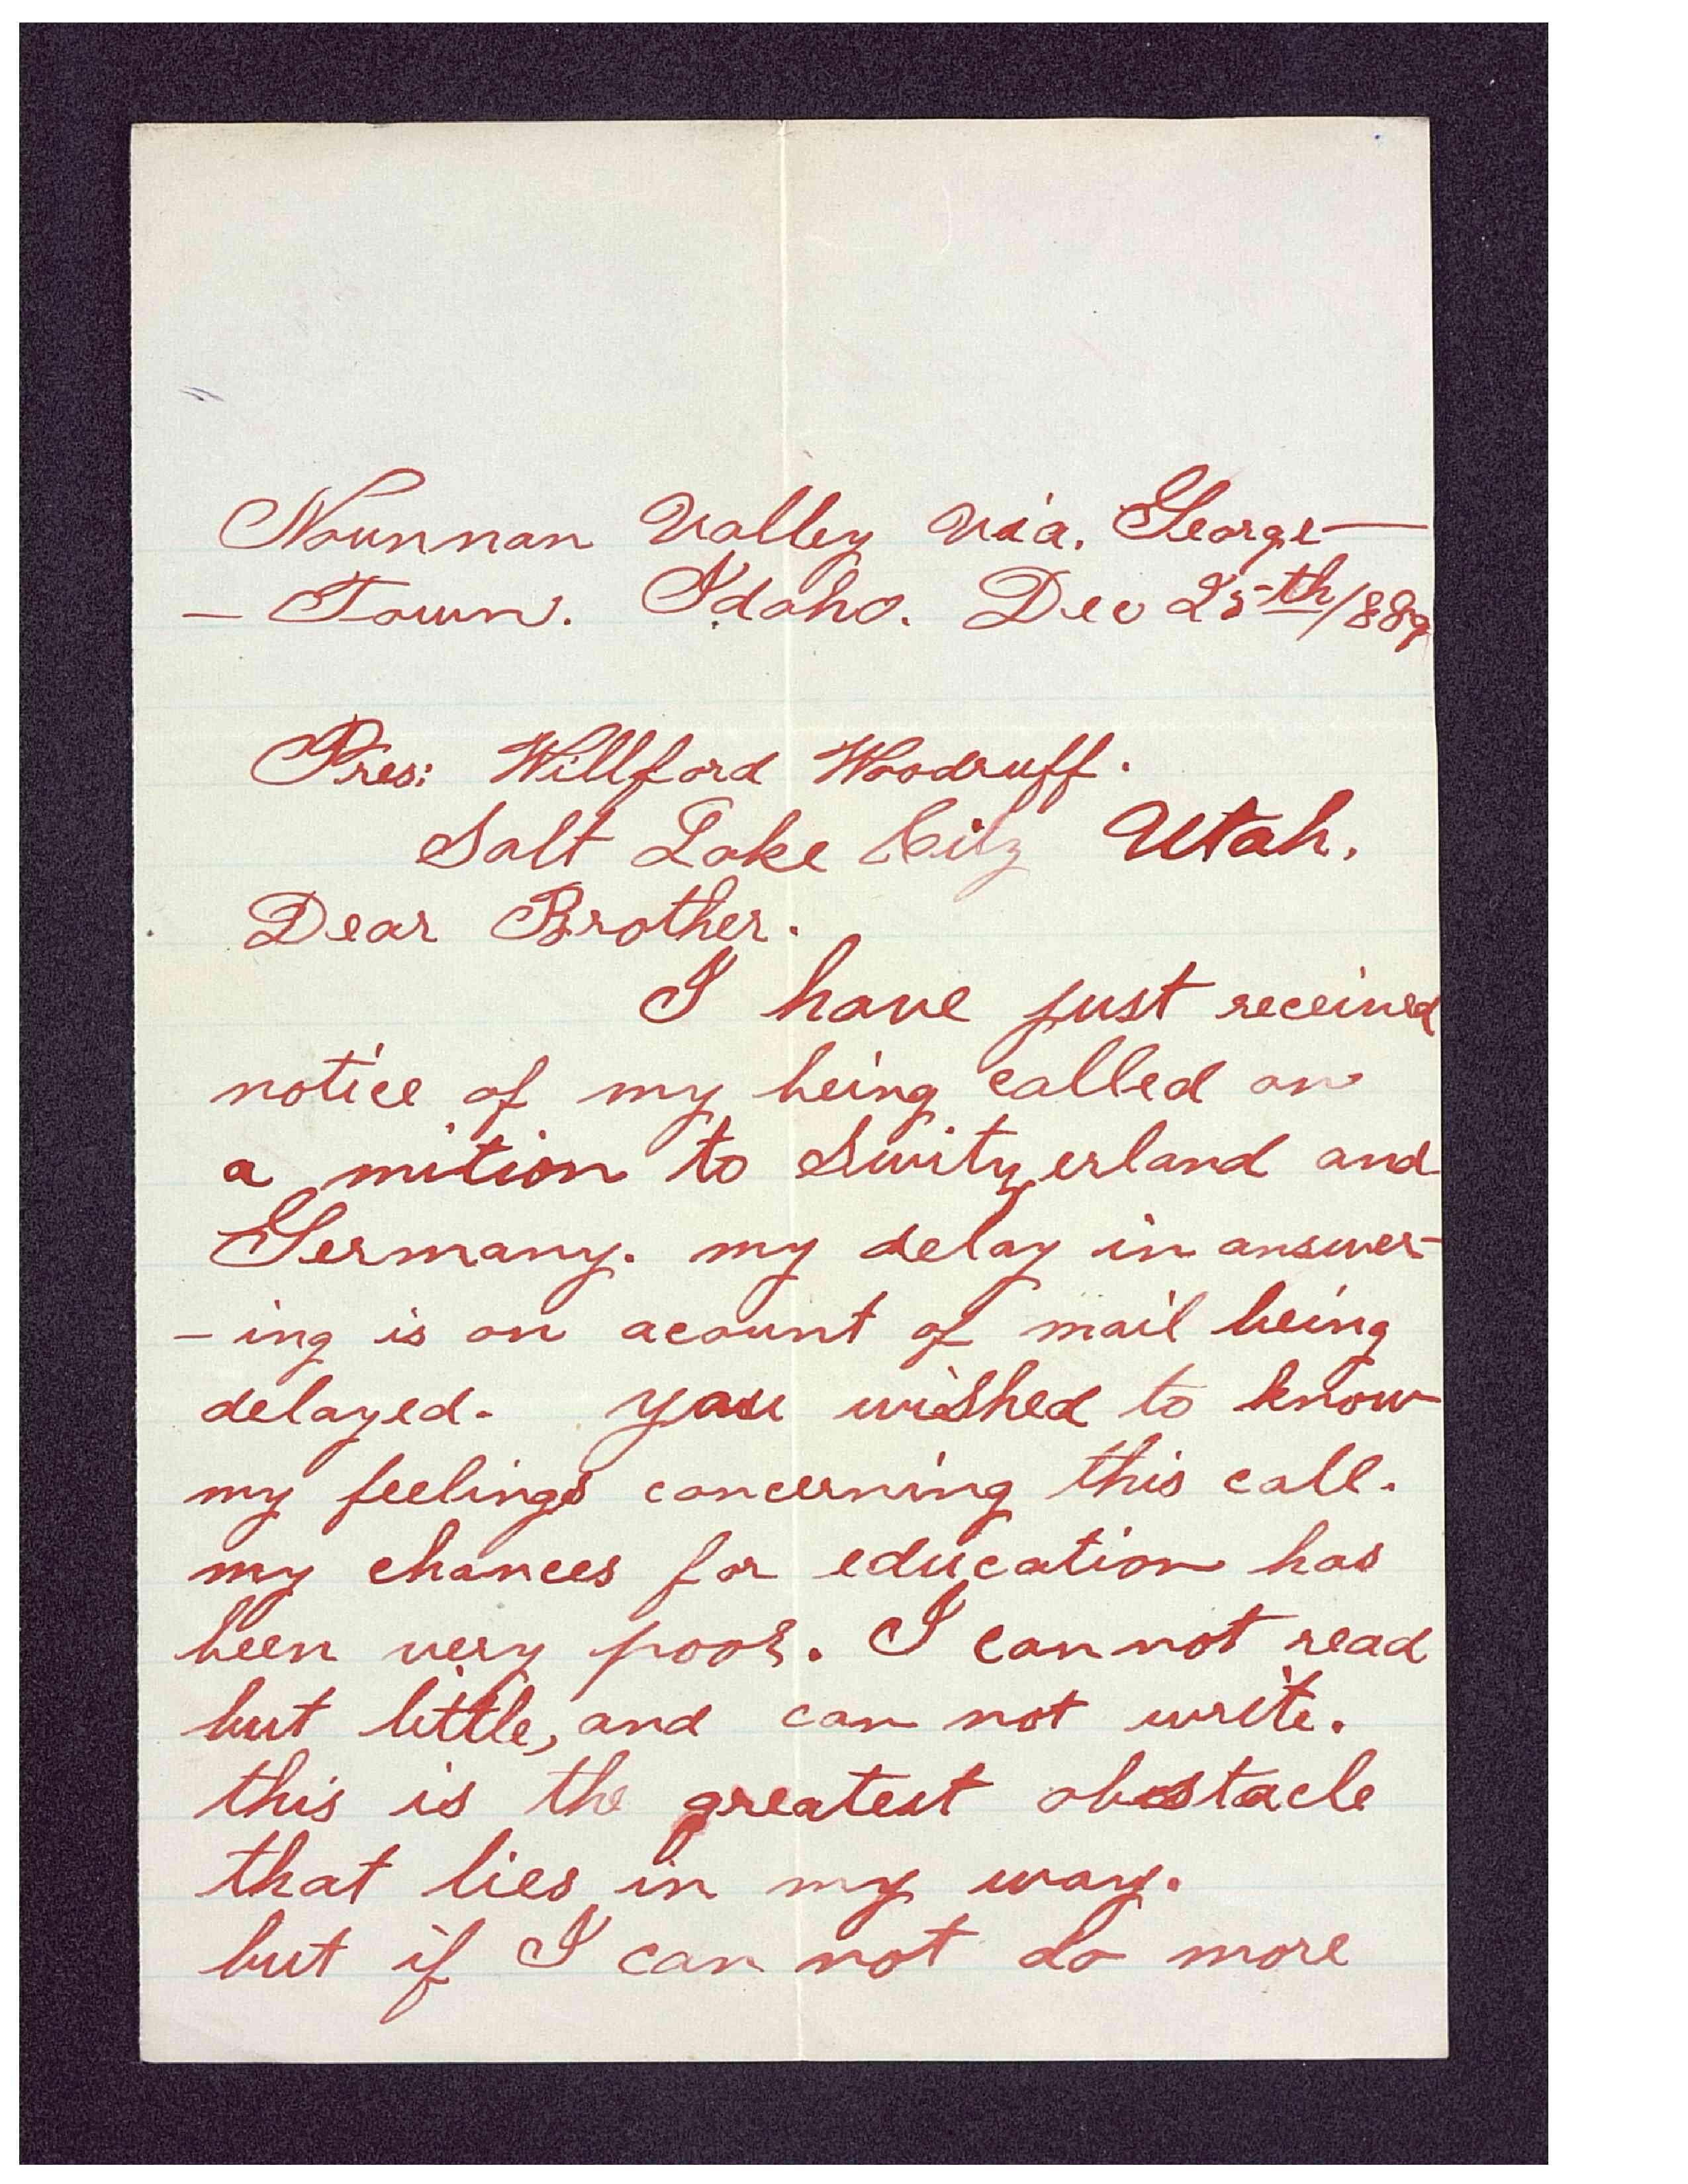 Nounnan Valley Via. George—
— Town. Idaho. Dec 25th/889
Pres: Willford Woodruff.
Salt Lake City Utah.
Dear Brother.
I have just received
notice of my being called on
a mition to Switzerland and
Germany. my delay in answer-
-ing is on acount of mail being
delayed. you wished to know
my feelings concerning this call.
my chances for education has
been very poor. I can not read
but little, and can not write.
this is the greatest obstacle
that lies in my way.
but if I can not do more